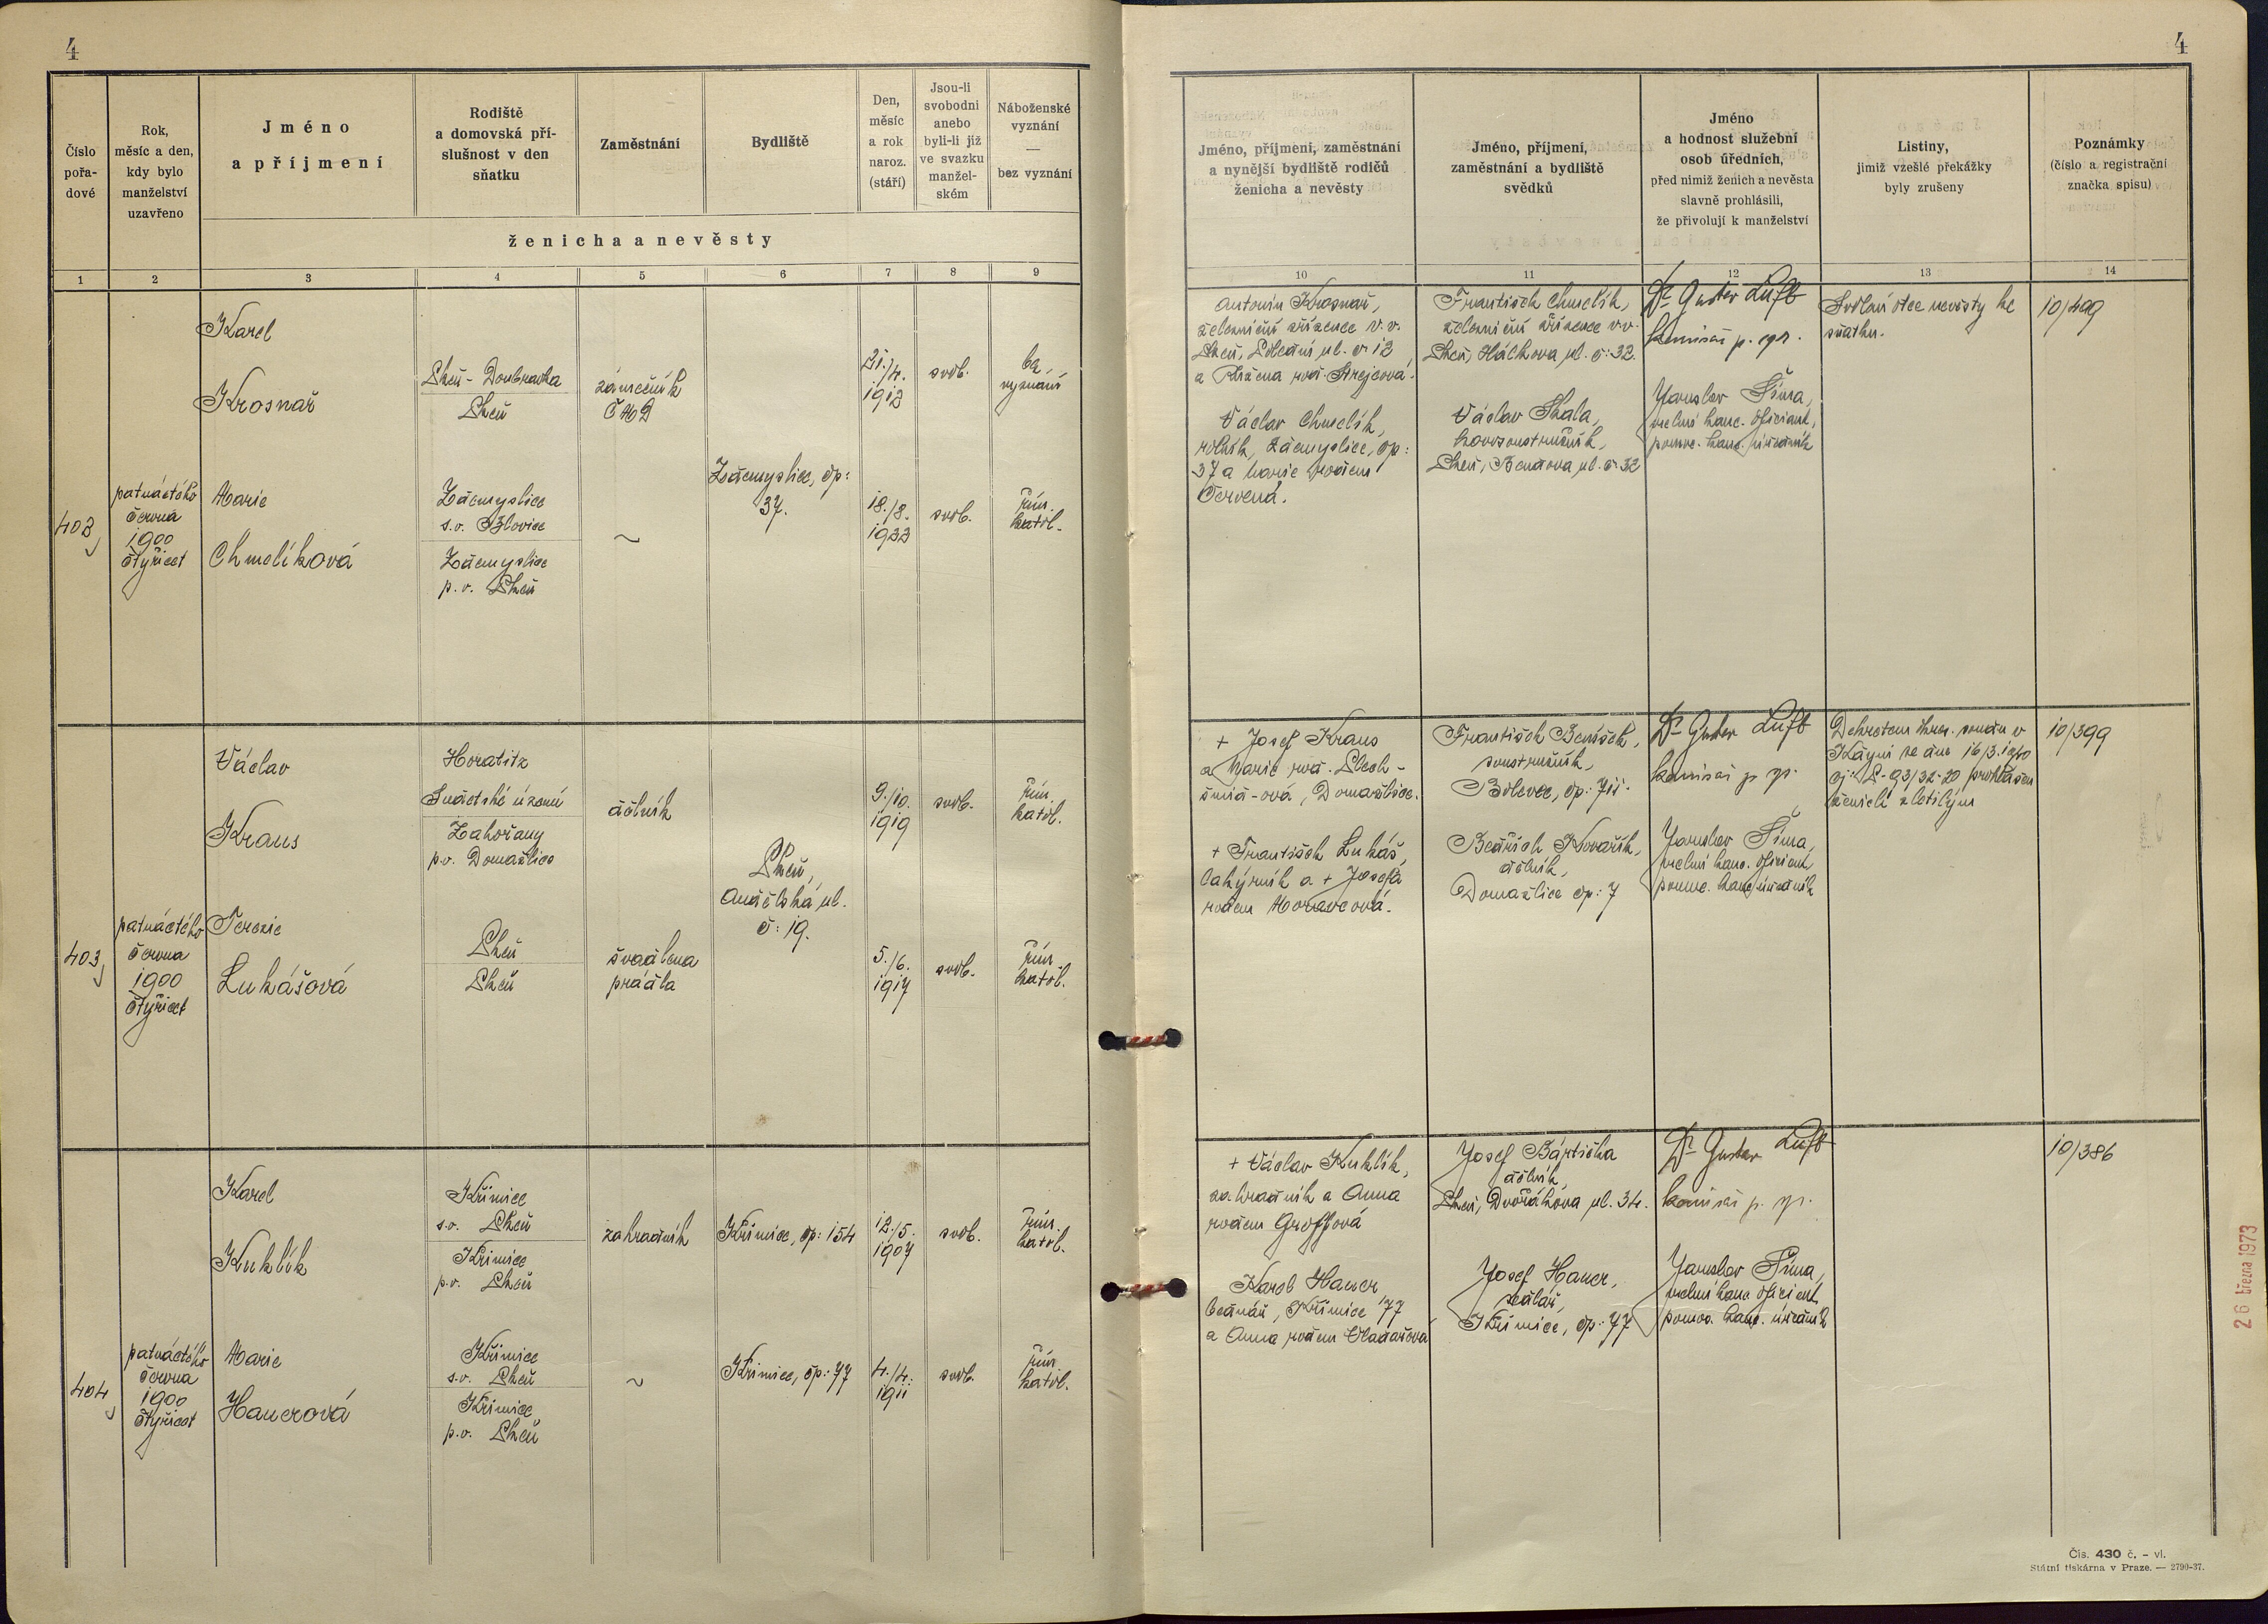 4
4
Číslo
pořa-
dové
Rok,
měsíc a den,
kdy bylo
manželství
uzavřeno
Jméno
a příjmení
Rodiště
a domovská pří-
slušnost v den
sňatku
Zaměstnání
Bydliště
Den,
měsíc
a rok
naroz.
(stáří)
Jsou-li
svobodni
anebo
byli-li již
ve svazku
manžel-
ském
Náboženské
vyznání
—
bez vyznání
ženicha a nevěsty
1 2 3 4 5 6 7 8 9
Jméno, příjmení, zaměstnání
a nynější bydliště rodičů
ženicha a nevěsty
Jméno, příjmení,
zaměstnání a bydliště
svědků
Jméno
a hodnost služební
osob úředních,
před nimiž ženich a nevěsta
slavně prohlásili,
že přivolují k manželství
Listiny,
jimiž vzešlé překážky
byly zrušeny
Poznámky
(číslo a registrační
značka spisu)
10 11 12 13 14
402
patnáctého
června
1900
čtyřicet
Karel
Krosnař
Plzeň - Doubravka
Plzeň
zámečník
ČMD
21./4.
1912
svob.
bez
vyznání
Marie
Chmelíková
Zdemyslice
s.o. Blovice
Zdemyslice
p.o. Plzeň
~
Zdemyslice, čp:
37.
18./8.
1922
svob.
řím.
katol.
Antonín Krosnař,
železniční zřízenec v.v.
Plzeň, ul. č 12
a Růžena roz. Strejcová.
Václav Chmelík,
rolník, Zdemyslice, čp:
37 a Marie rozem
Červená.
František Chmelík,
železniční zřízenec v.v.
Plzeň, Háckova ul. č: 32.
Václav Skala,
kovosoustružník,
Plzeň, Bendova ul. č 32
Dr Gustav Luft
komisař p. spr.
Jaroslav Šíma,
kanc. oficiant,
pomoc. kanc. úředník
Svolení otce nevěsty ke
sňatku.
10/499
403
patnáctého
června
1900
čtyřicet
Václav
Kraus
Horatitz
Sudetské území
Zahořany
p.o. Domažlice
dělník
9./10.
1919
svob.
řím.
katol.
Terezie
Lukášová
Plzeň
Plzeň
švadlena
prádla
Plzeň,
ul.
č: 19.
5./6.
1917
svob.
řím.
katol.
+ Josef Kraus
a Marie roz. Plech-
šmid-ová, Domažlice.
+ František Lukáš,
lakýrník a + Josefa
rodem Moravcová.
František Beníšek,
soustružník,
Bolevec, čp: 711.
Bedřich Kovařík,
dělník,
Domažlice čp: 7
Dr Gustav Luft
komisař p. spr.
Jaroslav Šíma,
kanc. oficiant
pomoc. kanc. úředník
Dekretem okres. soudu v
Kdyni ze dne 16/3. 1940
čj: P-93/32-20 prohlášen
ženich zletilým
10/399
404
patnáctého
června
1900
čtyřicet
Karel
Kuklík
Křimice
s.o. Plzeň
Křimice
p.o. Plzeň
zahradník
Křimice, čp: 154
12./5.
1907
svob.
řím.
katol.
Marie
Hauerová
Křimice
s.o. Plzeň
Křimice
p.o. Plzeň
~
Křimice, čp: 77
4./4.
1911
svob.
řím.
katol.
+ Václav Kuklík,
zahradník a Anna
rodem Groffová
Karel Hauer
bednář, Křimice 77
a Anna rodem Vladařová
Josef Bártička
dělník,
Plzeň, Dvořákova ul. 34.
Josef Hauer,
sedlář,
Křimice, čp: 77
Dr Gustav Luft
komisař p. spr.
Jaroslav Šíma,
kanc. oficiant
pomoc. kanc. úředník
10/386
26 března 1973
Čís. 430 č. – vl.
Státní tiskárna v Praze. — 2790-37.